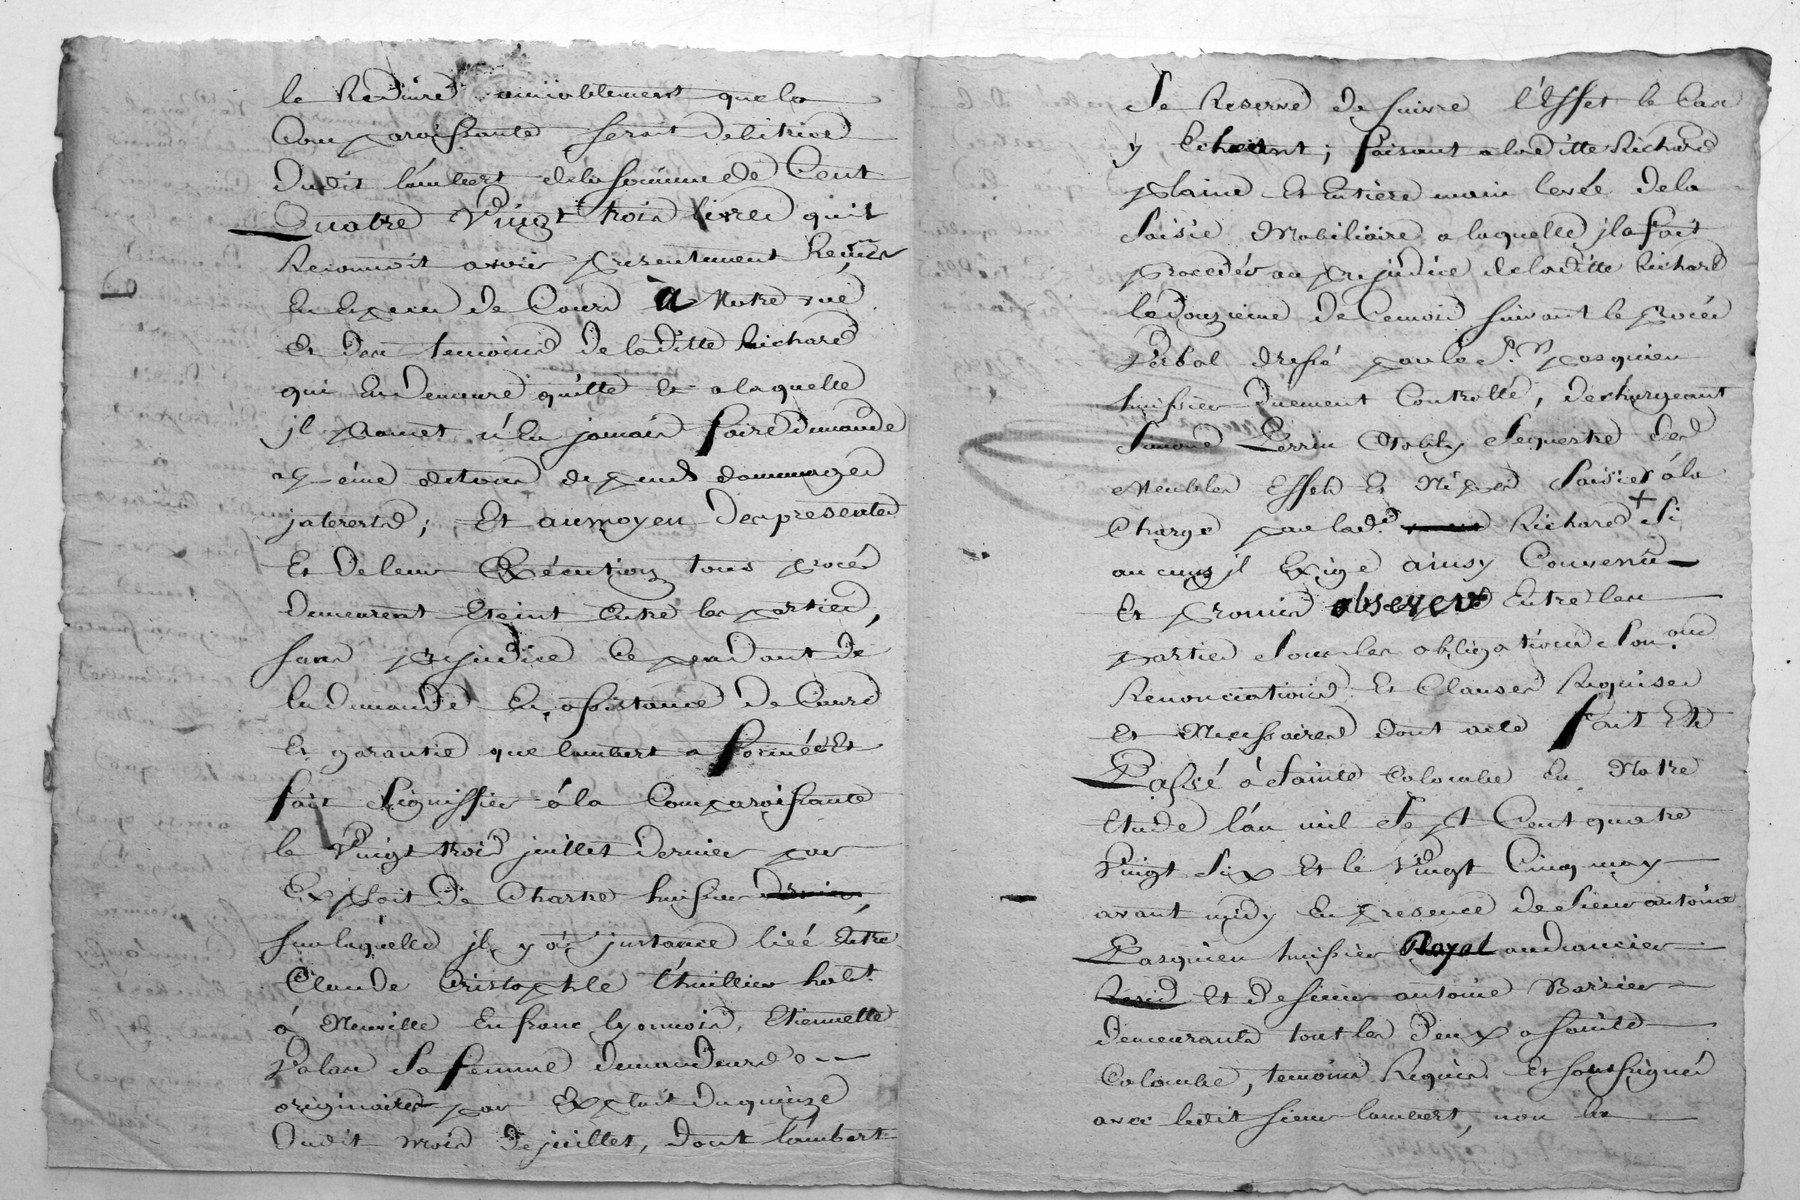 le Reduire amiablement que la
Comparoissante seroit debitrice
Dudit lambert dela somme de Cent
Quatre Vingt trois livres qu'il
Reconnoit avoir presentement Reçües
En Especes de Cours à Notre vüe
Et Des temoins de laditte Richard
qui En Demeure quitte Et a laquelle
jl promet n'En jamais faire demande
a peine de tous depends dommages
jnterests; Et au moyen Des presentes
Et De leur Exécution tous procés
Demeurent Eteint Entre les parties,
sans prejudice Cependant de
la demande En assistance De Cause
Et garantie que lambert a formée Et
fait Signiffier á la Comparoissante
le Vingt trois juillet dernier par
Exploit De Charre huissier
sur laquelle jl y a jnstance liée Entre
Claude Cristophle thuillier habt.
á Neuville En franc lyonnois, Etiennette
Valan Sa femme demandeurs
originaires par Exploit du quinze
Dudit mois De juillet, Dont lambert
Se Reserve de suivre l'Effet le Cas
y Echeant; faisant a laditte Richard
plaine Et Entiere main levée De la
Saisie Mobiliaire a laquelle jl a fait
proceder au prejudice de laditte Richard
le douzieme de Ce mois suivant le procés
Verbal dressé par le Sr. pasquien
huissier Düement Controllé, Dechargeant
Simone Perrin Sequestre des
Meubles Effets Et Saisies á la
Charge par lade. Richard + Si
aucuns jl Exige ainsy Convenu
Et promis observer Entre les
parties Sous les obligations Soumons
Renonciations Et Clauses Requises
Et Necessaires dont acte fait Et
Passé à Sainte Colombe En Notre
Etude l'an mil Sept Cent quatre
Vingt Six Et le Vingt Cinq may
avant midy En presence de Sieur antoine
Pasquien huissier Royal audiancier
Et De sieur antoine Barrier
Demeurants tout les Deux a sainte
Colombe, temoins Requis Et soussignés
avec ledit sieur lambert, non la